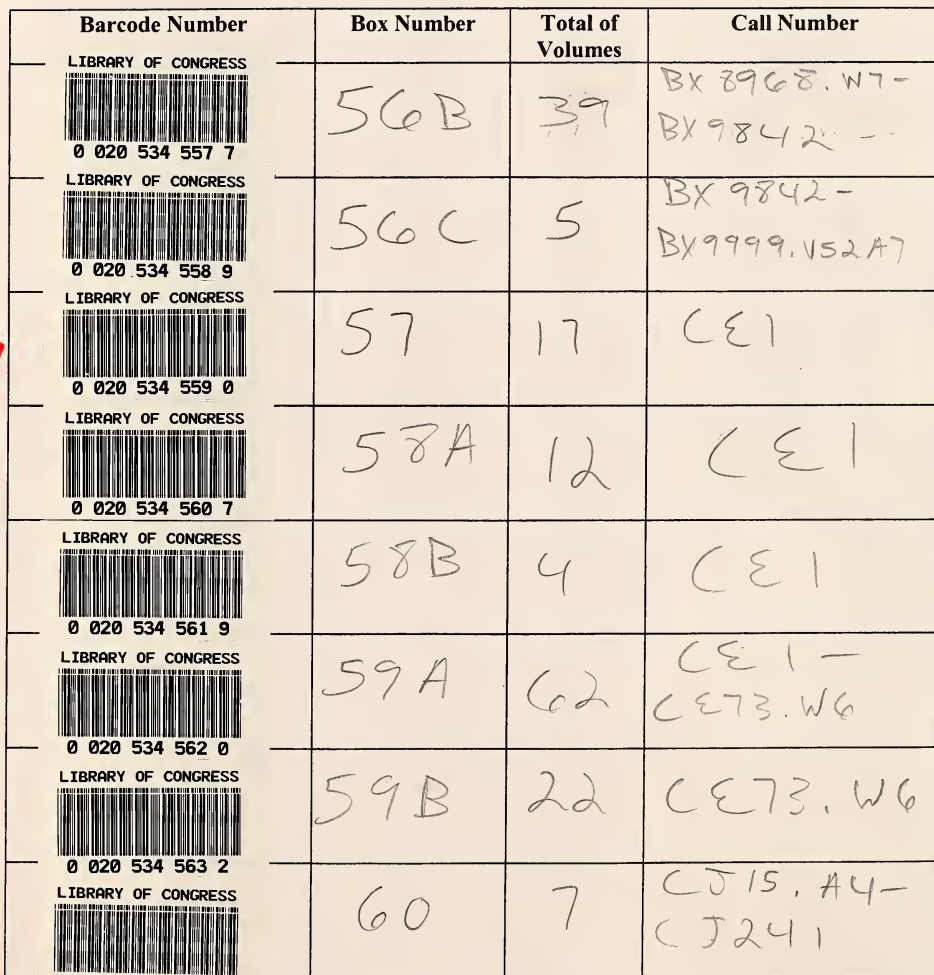 Barcode Number Box Number Total of Volumes Call Number
LIBRARY OF CONGRESS
0 020 534 557 7
56B 39 BX 8968.W7-
BX 9842 --
LIBRARY OF CONGRESS
0 020 534 558 9
56C 5 BX 9842-
BX9999.V52A7
LIBRARY OF CONGRESS
0 020 534 559 0
57 17 CE1
LIBRARY OF CONGRESS
0 020 534 560 7
58A 12 CE1
LIBRARY OF CONGRESS
0 020 534 561 9
58B 4 CE1
LIBRARY OF CONGRESS
0 020 534 562 0
59A 62 CE1-
CE73.W6
LIBRARY OF CONGRESS
0 020 534 563 2
59B 22 CE73.W6
LIBRARY OF CONGRESS
60 7 CJ15.A4-
CJ241